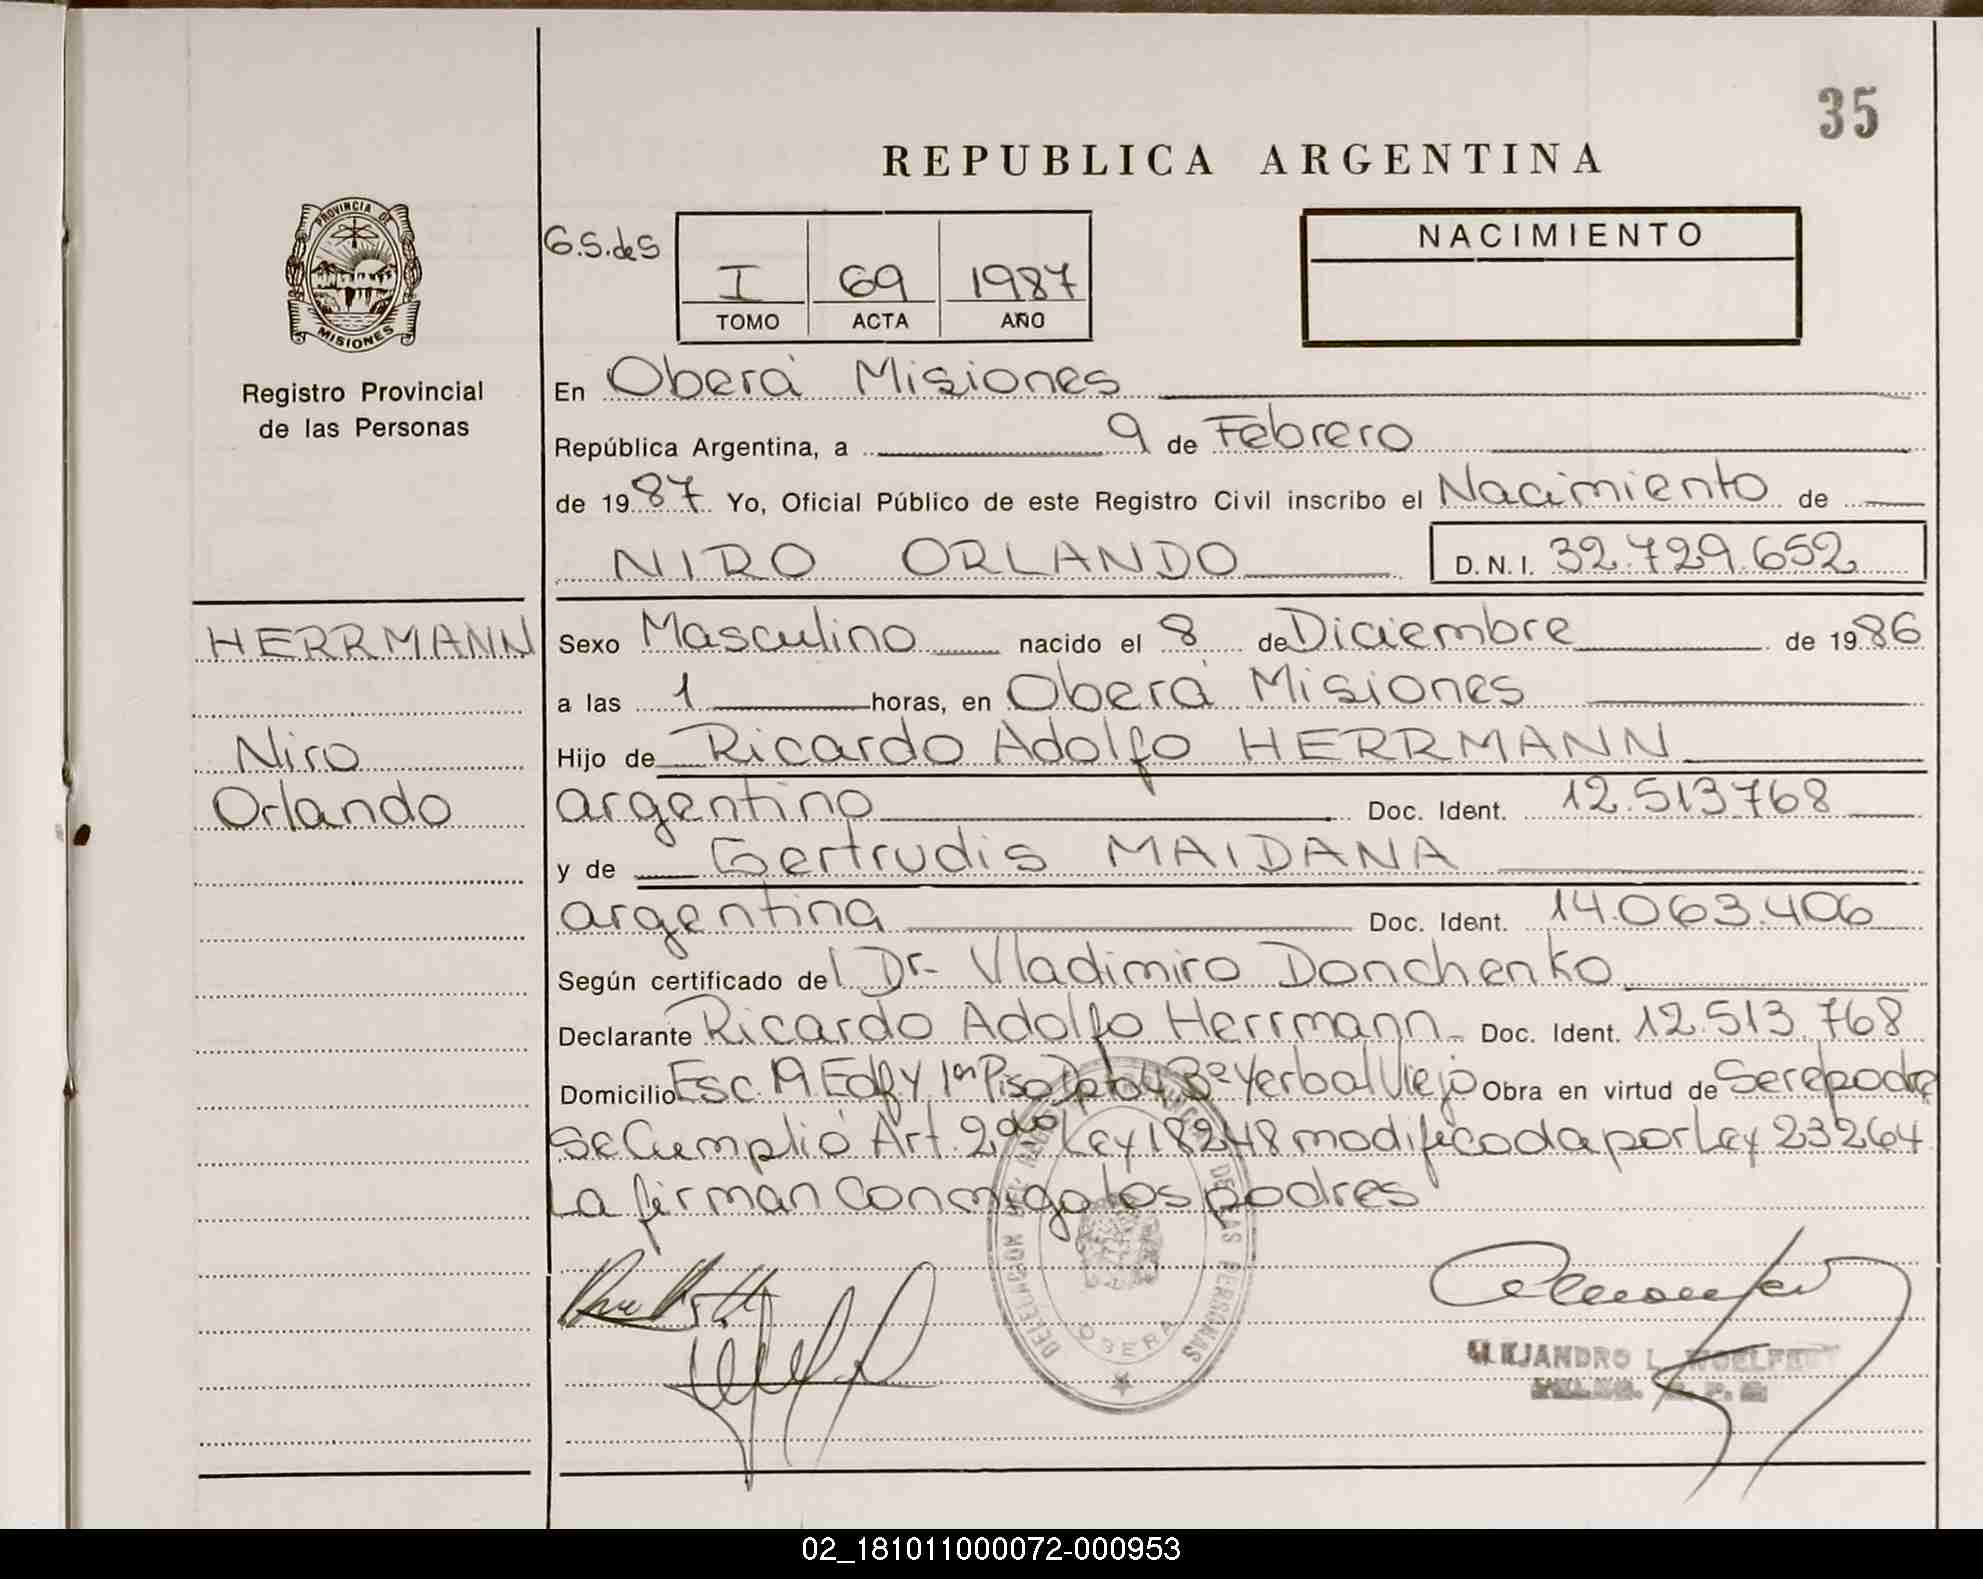 35
REPUBLICA ARGENTINA
PROVINCIA DE
MISIONES
Registro Provincial
de las Personas
G.S.deS
I 69 1987
TOMO ACTA AÑO
NACIMIENTO
En Oberá Misiones
República Argentina, a 9 de Febrero
de 1987 Yo, Oficial Público de este Registro Civil inscribo el Nacimiento de
NIRO ORLANDO D.N.I. 32.729.652
HERRMANN
Niro
Orlando
Sexo Masculino nacido el 8 de Diciembre de 1986
a las 1 horas, en Oberá Misiones
Hijo de Ricardo Adolfo HERRMANN
argentino Doc. Ident. 12.513768
y de Gertrudis MAIDANA
argentina Doc. Ident. 14.063.406
Según certificado del Dr. Vladimiro Donchenko
Declarante Ricardo Adolfo Herrmann Doc. Ident. 12.513.768
Domicilio Esc. 19 Edf Y 1er Piso Dpto 4 Bº Yerbal Viejo Obra en virtud de Serepadre
Se Cumplió Art. 2do Ley 18248 modificada por Ley 23264
La firman Conmigo los padres
DE LAS PERSONAS
OBERA
ALEJANDRO L.
02_181011000072-000953